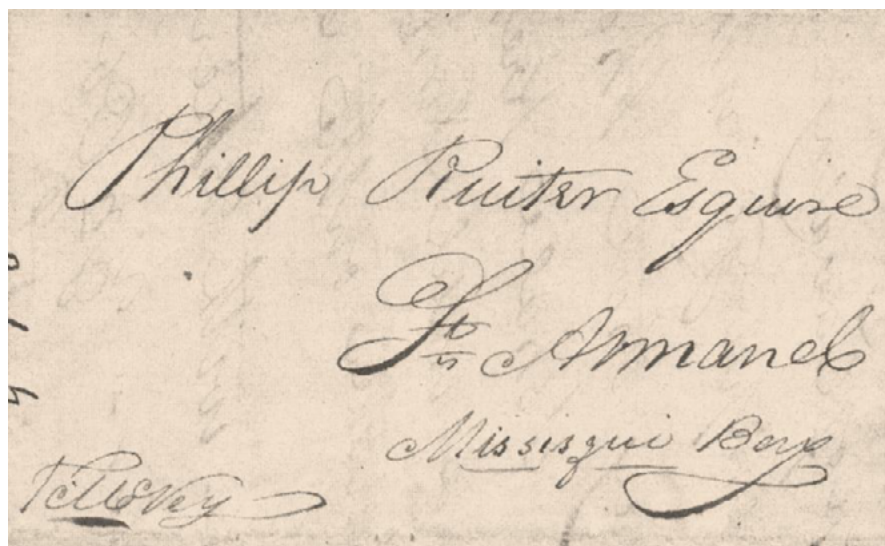 Phillip Ruiter Esquire
St Armand
Missisqui Bay